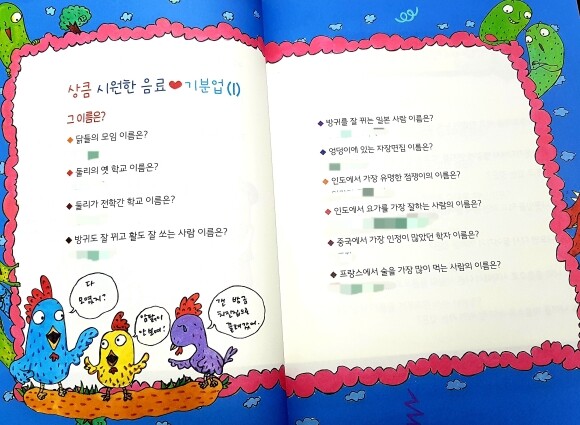 상큼 시원한 음료❤기분업(1)
그 이름은?
◆ 닭들의 모임 이름은?
◆ 둘리의 옛 학교 이름은?
◆ 둘리가 전학간 학교 이름은?
◆ 방귀도 잘 뀌고 활도 잘 쏘는 사람 이름은?
다
모였지?
안 보여!
갠 방금
◆ 방귀를 잘 뀌는 일본 사람 이름은?
◆ 엉덩이에 있는 자장면집 이름은?
◆ 인도에서 가장 유명한 점쟁이의 이름은?
◆ 인도에서 요가를 가장 잘하는 사람의 이름은?
◆ 중국에서 가장 인정이 많았던 학자 이름은?
◆ 프랑스에서 술을 가장 많이 먹는 사람의 이름은?